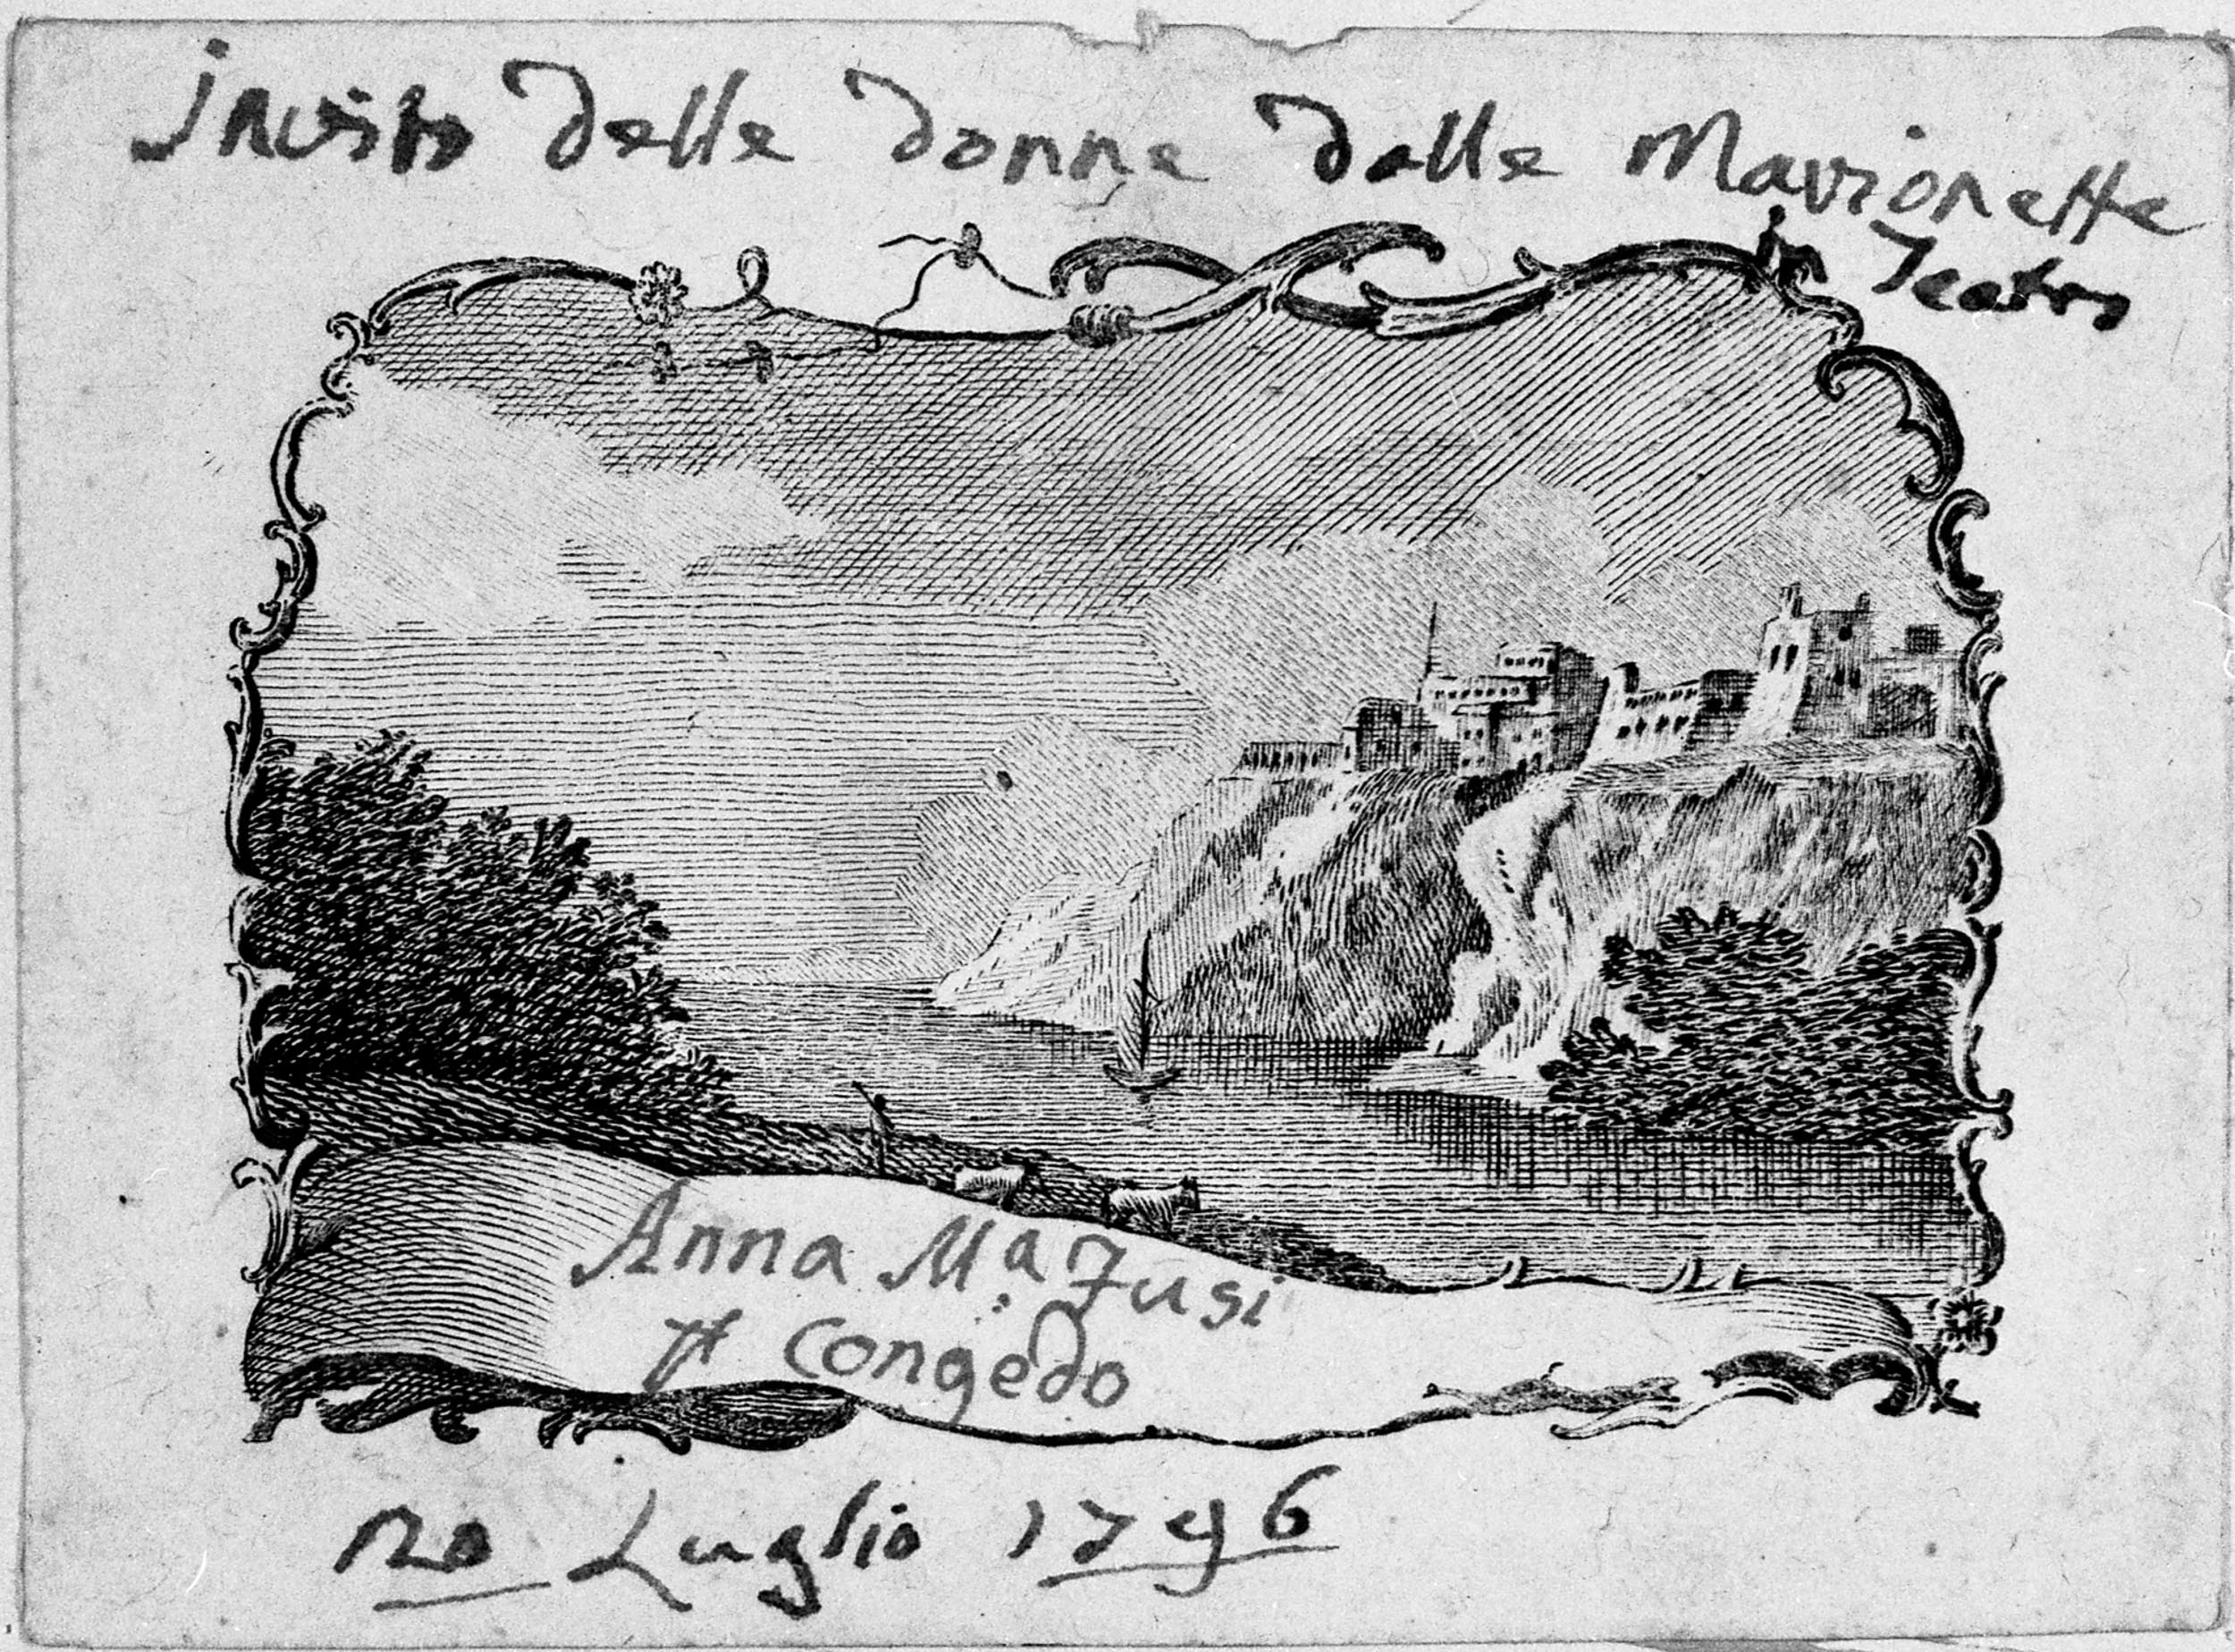 invito delle donne delle Marionette
in Teatro
Anna Mᵃ Fusi
Congedo
Luglio 1796